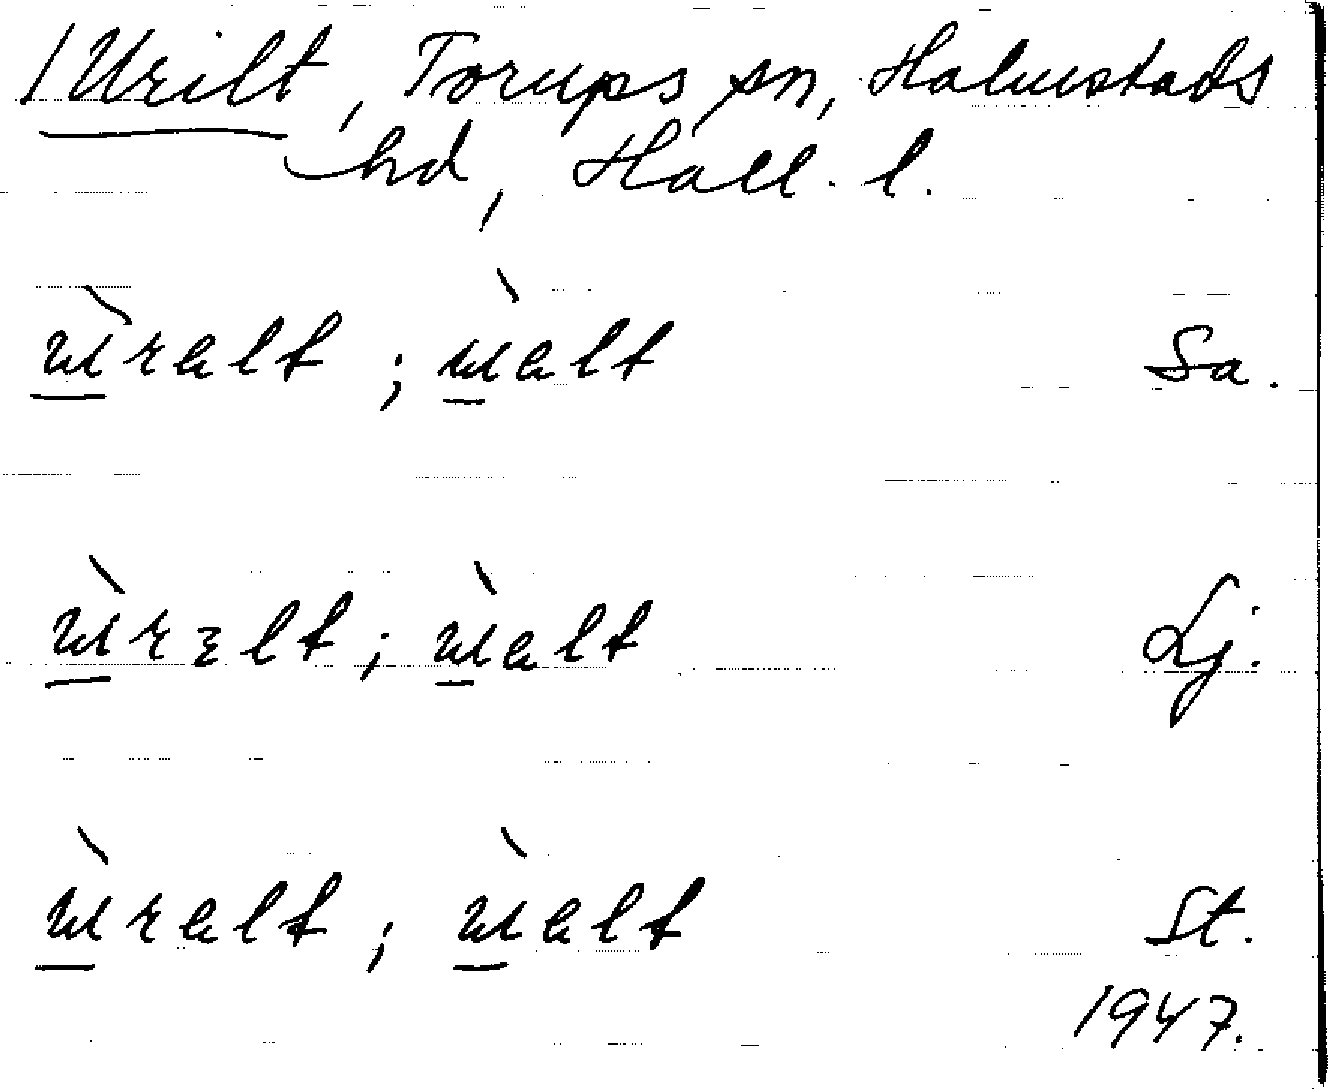 /Urilt, Torups sn, Halmstads
hd, Hall. l.
ùralt ; ùalt Sa.
ùrɛlt ; ùalt Lj.
ùralt ; ùalt St.
1947.